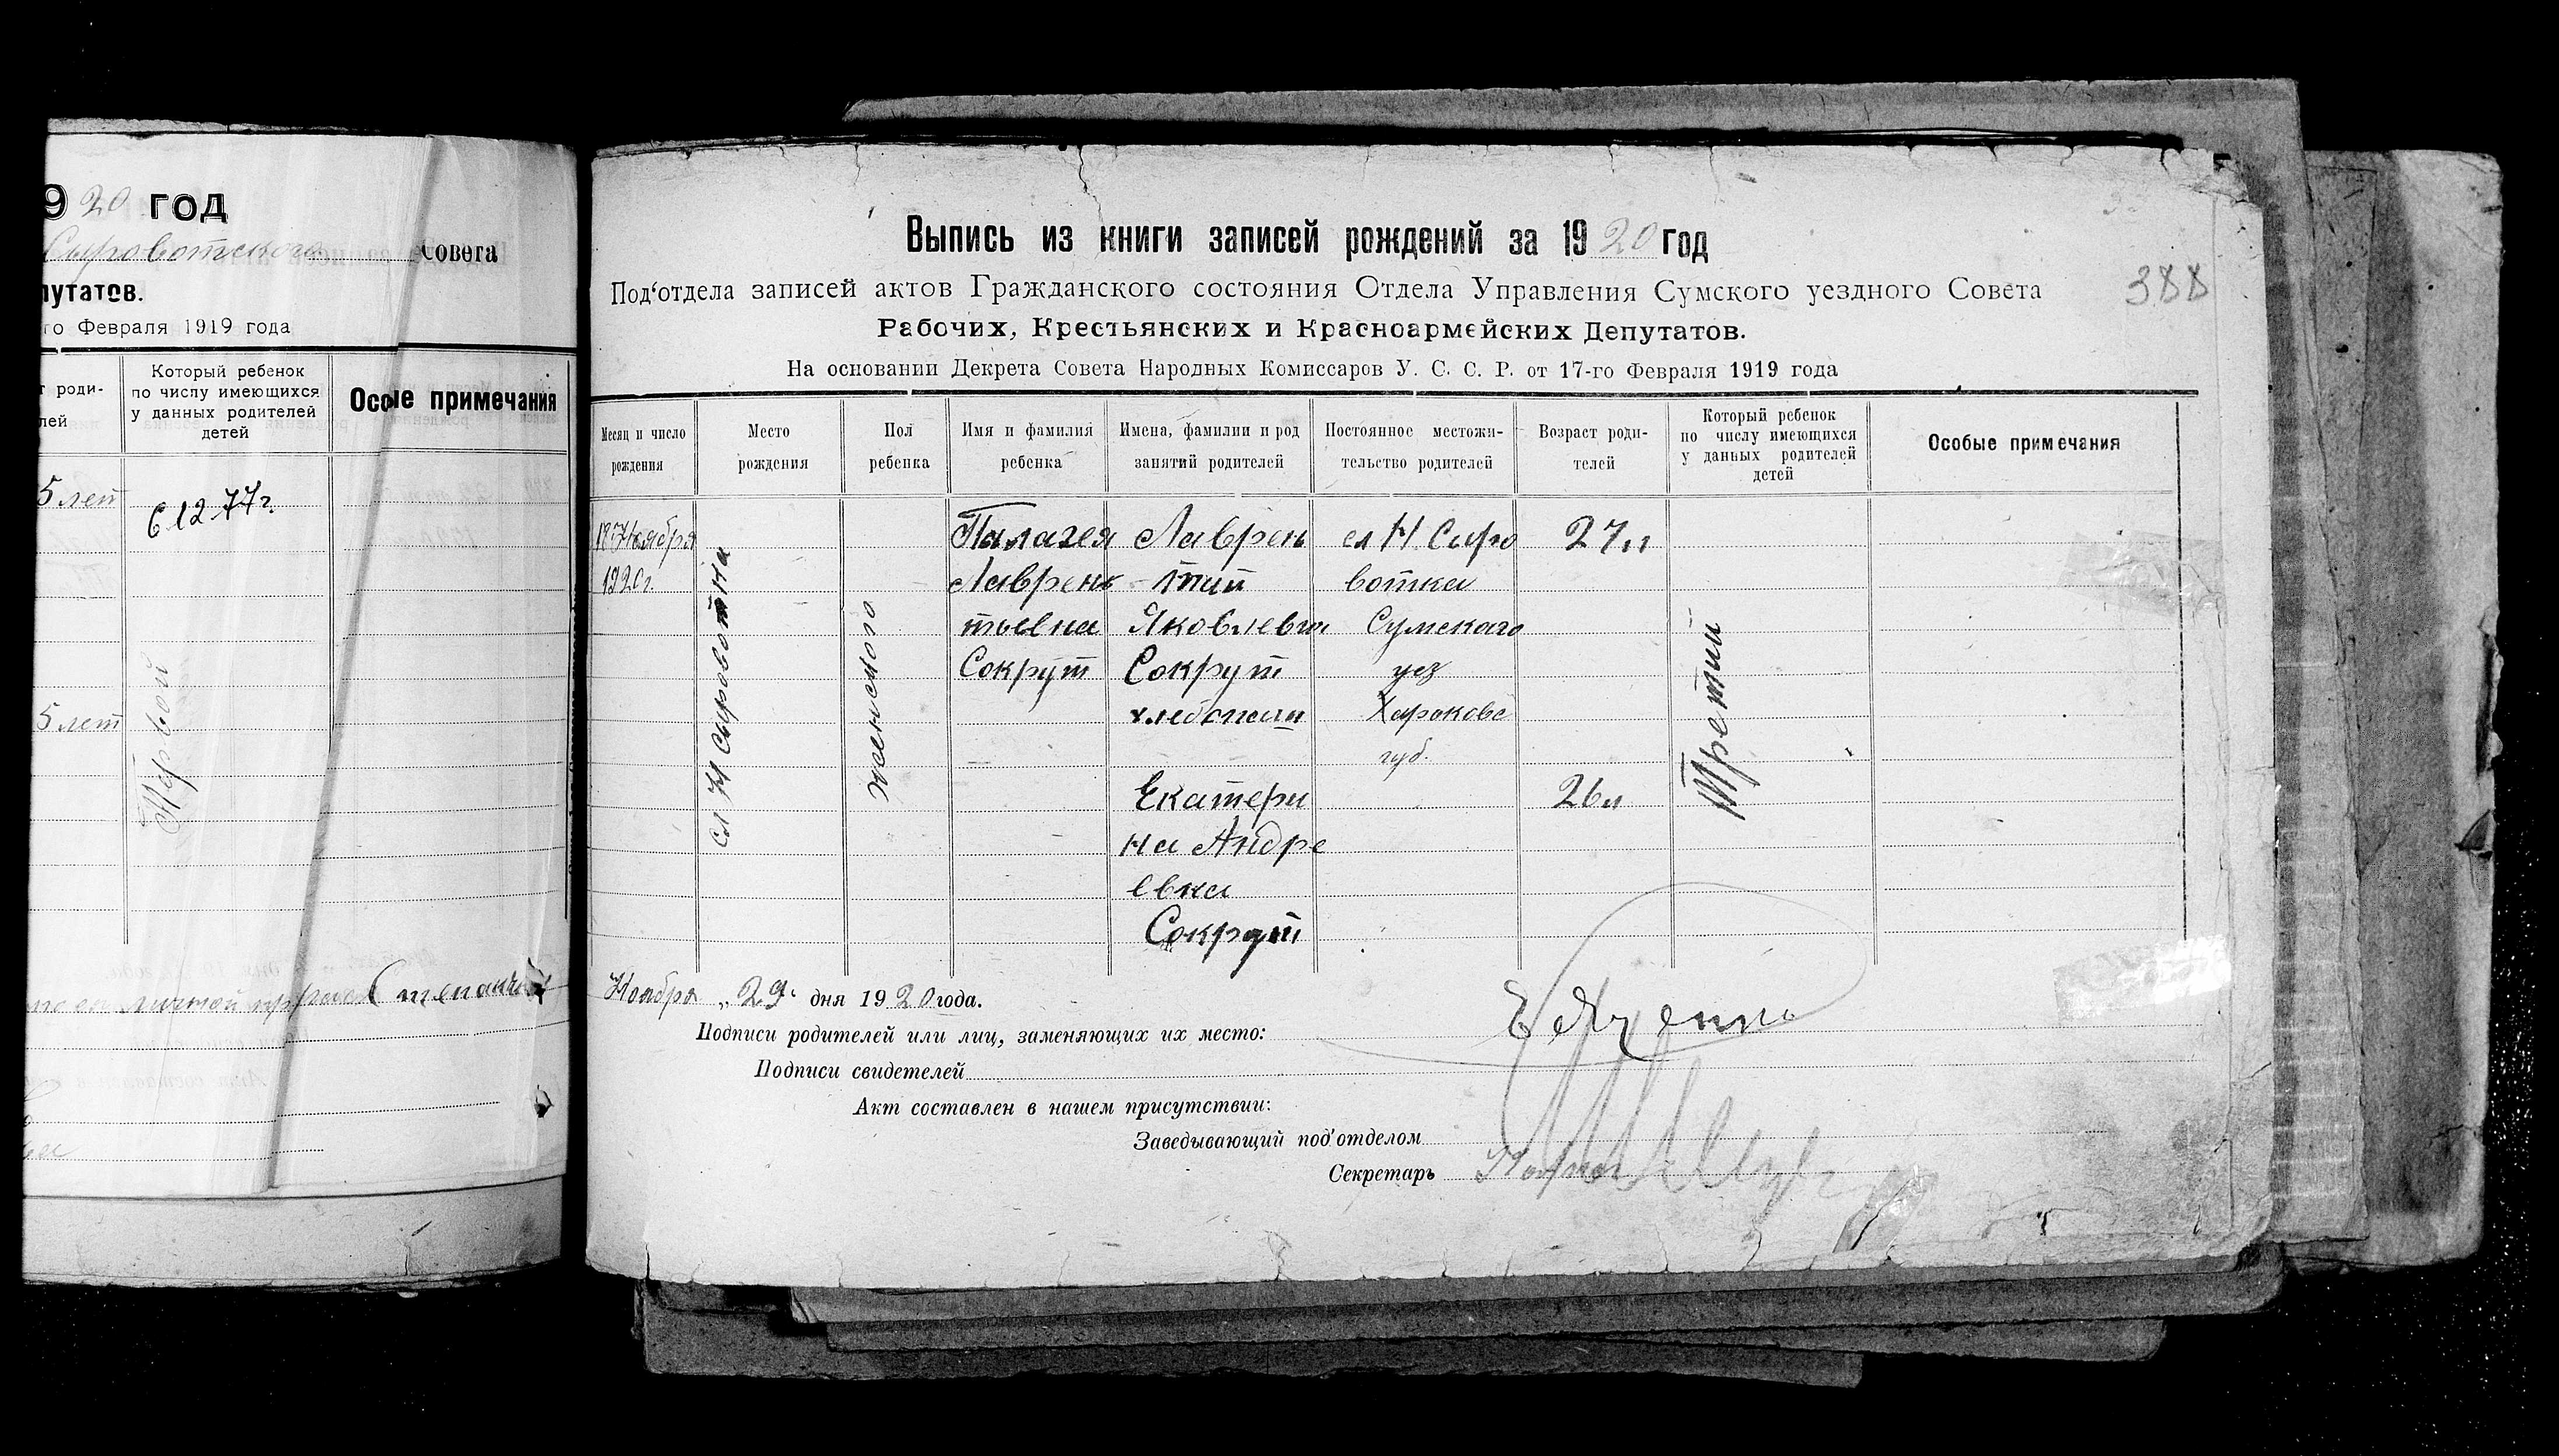 9 20 год
Сыровотского Совета
путатов.
го Февраля 1919 года
т роди-
лей
Который ребенок
по числу имеющихся
у данных родителей
детей
Особые примечания
5 лет
6 12 77 г.
5 лет
Первой
Выпись из книги записей рождений за 1920 год
388
Под‘отдела записей актов Гражданского состояния Отдела Управления Сумского уездного Совета
Рабочих, Крестьянских и Красноармейских Депутатов.
На основании Декрета Совета Народных Комиссаров У. С. С. Р. от 17-го Февраля 1919 года
Месяц и число
рождения
Место
рождения
Пол
ребенка
Имя и фамилия
ребенка
Имена, фамилии и род
занятий родителей
Постоянное местожи-
тельство родителей
Возраст роди-
телей
Который ребенок
по числу имеющихся
у данных родителей
детей
Особые примечания
Ноября
1920 г.
сл Н Сыровотка
женского
Палагея
Лаврень
тьевна
Сокрут
Лаврен
тий
Яковлевич
Сокрут
хлебопаш
Екатери
на Андре
евна
Сокрут
сл Н. Сыро
вотка
Сумскаго
уез
Харьковс
губ.
27 л
26 л
Третий
Ноября „29“ дня 1920 года.
Подписи родителей или лиц, заменяющих их место:
Подписи свидетелей
Акт составлен в нашем присутствии:
Заведывающий под‘отделом
Секретарь